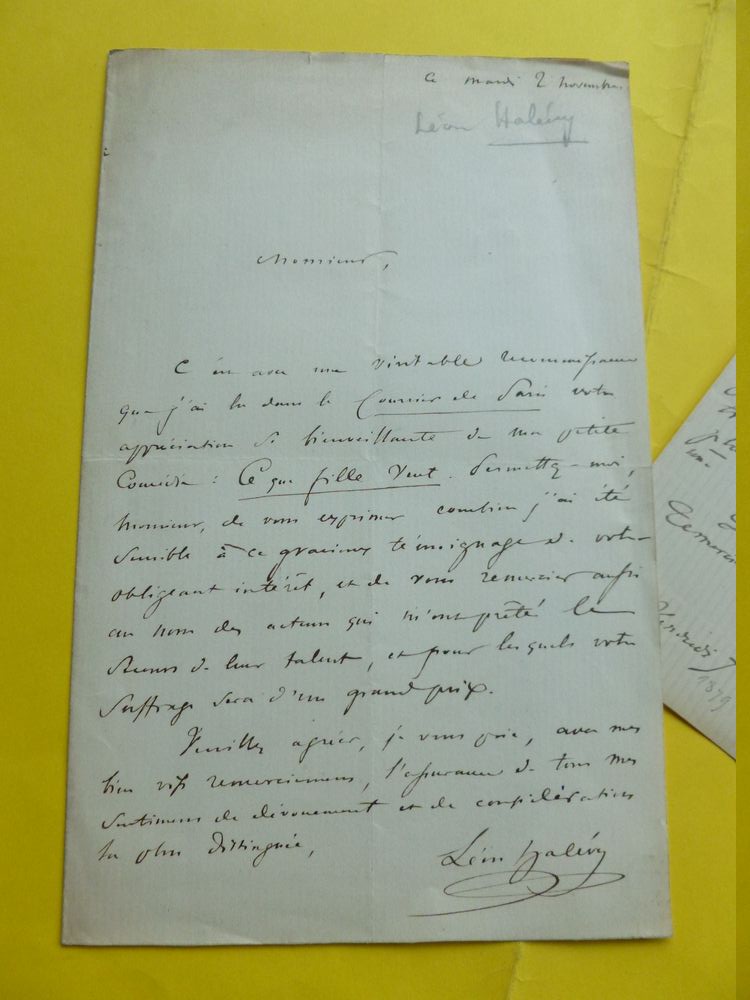 ce mardi 2 novembre
Léon Halévy
Monsieur,
C'est avec une véritable reconnaissance
que j'ai lu dans le Courrier de Paris votre
appréciation si bienveillante de ma petite
Comédie : Ce que fille veut. Permettez-moi,
Monsieur, de vous exprimer combien j'ai été
sensible à ce gracieux témoignage de votre
obligeant intérêt, et de vous remercier aussi
au nom des acteurs qui m'ont prêté le
secours de leur talent, et pour lesquels votre
suffrage sera d'un grand prix.
Veuillez agréer, je vous prie, avec mes
bien vifs remerciemens, l'assurance de tous mes
sentimens de dévouement et de considération
la plus distinguée,
Léon Halévy
1879